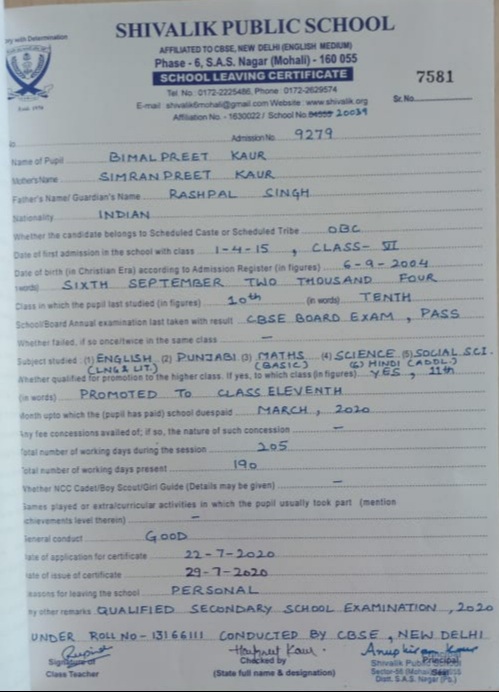 SHIVALIK PUBLIC SCHOOL
AFFILIATED TO CBSE, NEW DELHI (ENGLISH MEDIUM)
Phase - 6, S.A.S. Nagar (Mohali) - 160 055
SCHOOL LEAVING CERTIFICATE
7581
Tel. No. 0172-2225486, Phone : 0172-2629574
Sr.No.
E-mail : shivalik6mohali@gmail.com Website : www.shivalik.org
Affiliation No. - 1630022 / School No. 20039
Admission No. 9279
Name of Pupil BIMALPREET KAUR
Mother's Name SIMRANPREET KAUR
Father's Name/ Guardian's Name RASHPAL SINGH
Nationality INDIAN
Whether the candidate belongs to Scheduled Caste or Scheduled Tribe OBC
Date of first admission in the school with class 1-4-15, CLASS-VI
Date of birth (in Christian Era) according to Admission Register (in figures) 6-9-2004
words) SIXTH SEPTEMBER TWO THOUSAND FOUR
Class in which the pupil last studied (in figures) 10th (in words) TENTH
School/Board Annual examination last taken with result CBSE BOARD EXAM, PASS
Whether failed, if so once/twice in the same class –
Subject studied : (1) ENGLISH (2) PUNJABI (3) MATHS (4) SCIENCE (5) SOCIAL SCI.
(LNG & LIT.) (BASIC) (6) HINDI (ADDL.)
Whether qualified for promotion to the higher class. If yes, to which class (in figures) YES, 11th
(in words) PROMOTED TO CLASS ELEVENTH
Month upto which the (pupil has paid) school dues paid MARCH, 2020
Any fee concessions availed of; if so, the nature of such concession –
Total number of working days during the session 205
Total number of working days present 190
Whether NCC Cadet/Boy Scout/Girl Guide (Details may be given) –
Games played or extralcurricular activities in which the pupil usually took part (mention
achievements level therein) –
General conduct GOOD
Date of application for certificate 22-7-2020
Date of issue of certificate 29-7-2020
Reasons for leaving the school PERSONAL
Any other remarks QUALIFIED SECONDARY SCHOOL EXAMINATION, 2020
UNDER ROLL NO-13166111 CONDUCTED BY CBSE, NEW DELHI
Harpreet Kaur Anupkiran Kaur
Signature of Checked by Principal
Class Teacher (State full name & designation) Seal
Shivalik Public School
Sector-66 (Mohali)
Distt. S.A.S. Nagar (Pb.)